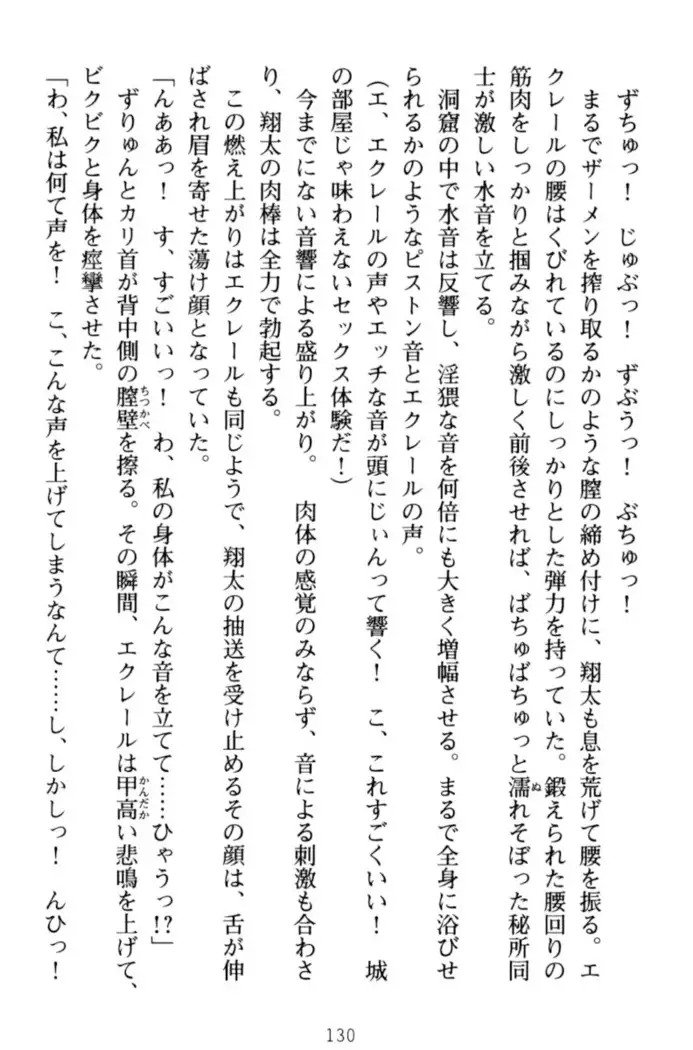 ずちゅっ！　じゅぶっ！　ずぶうっ！　ぶちゅっ！
まるでザーメンを搾り取るかのような膣の締め付けに、翔太も息を荒げて腰を振る。エ
クレールの腰はくびれているのにしっかりとした弾力を持っていた。鍛えられた腰回りの
筋肉をしっかりと掴みながら激しく前後させれば、ばちゅばちゅっと濡れそぼった秘所同
士が激しい水音を立てる。
洞窟の中で水音は反響し、淫猥な音を何倍にも大きく増幅させる。まるで全身に浴びせ
られるかのようなピストン音とエクレールの声。
（エ、エクレールの声やエッチな音が頭にじぃんって響く！　こ、これすごくいい！　城
の部屋じゃ味わえないセックス体験だ！）
今までにない音響による盛り上がり。　肉体の感覚のみならず、音による刺激も合わさ
り、翔太の肉棒は全力で勃起する。
この燃え上がりはエクレールも同じようで、翔太の抽送を受け止めるその顔は、舌が伸
ばされ眉を寄せた蕩け顔となっていた。
「んああっ！　す、すごいいっ！　わ、私の身体がこんな音を立てて……ひゃうっ!?」
ずりゅんとカリ首が背中側の膣壁ちつかべを擦る。その瞬間、エクレールは甲高かんだかい悲鳴を上げて、
ビクビクと身体を痙攣させた。
「わ、私は何て声を！　こ、こんな声を上げてしまうなんて……し、しかしっ！　んひっ！
130